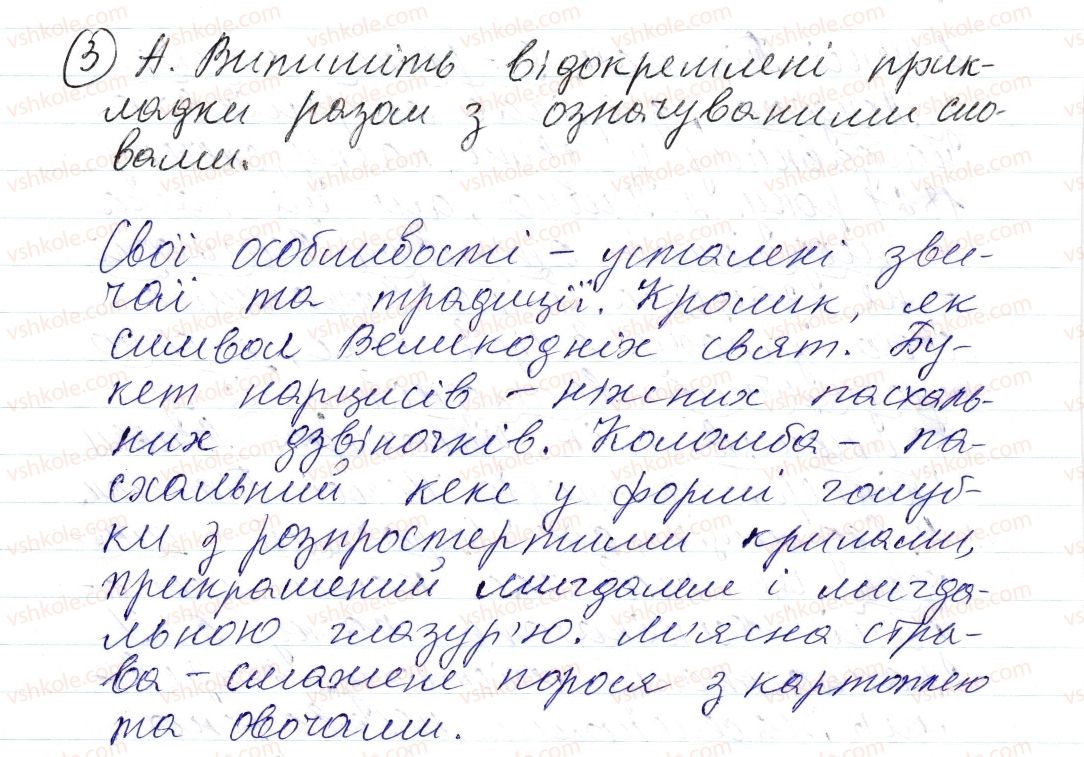 ③ А. Випишіть відокремлені прик-
ладки разом з означуваними сло-
вами.
Свої особливості – усталені зви-
чаї та традиції. Кролик, як
символ Великодніх свят. Бу-
кет нарцисів – ніжних пасхаль-
них дзвіночків. Коломба – па-
схальний кекс у формі голуб-
ки з розпростертими крилами,
прикрашений мигдалем і мигда-
льною глазур'ю. М'ясна стра-
ва – смажене порося з картоплею
та овочами.